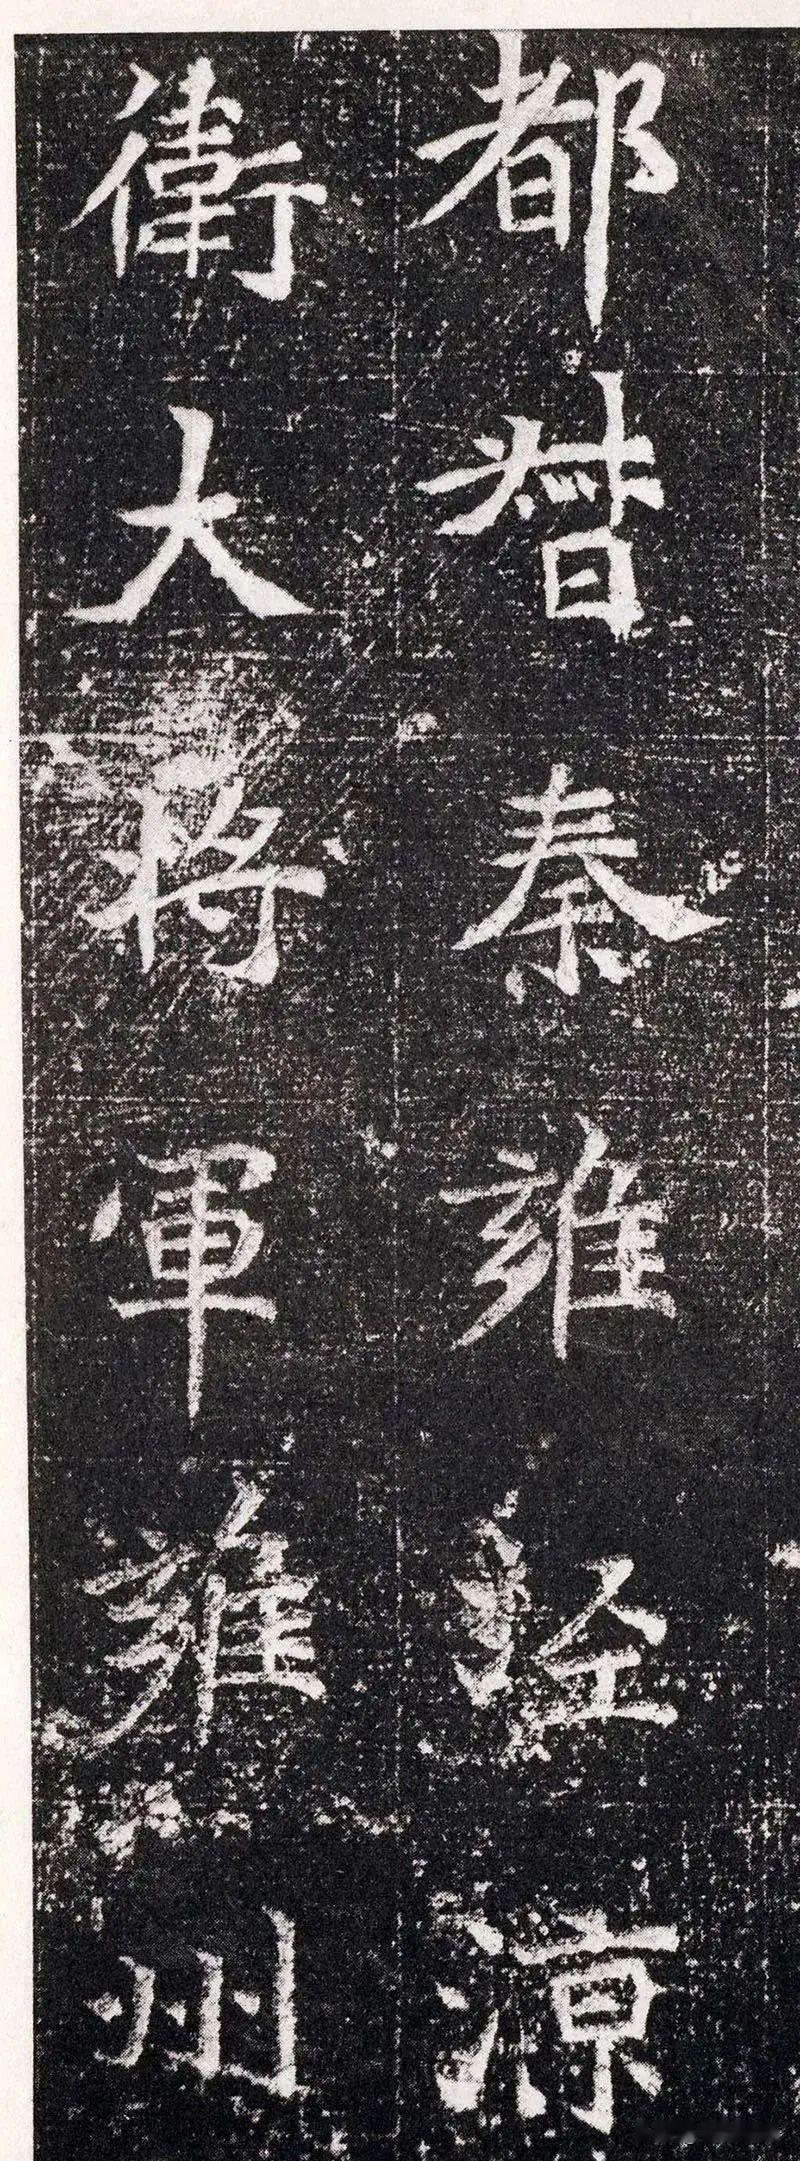 都督秦雍涇涼
衛大将軍雍州